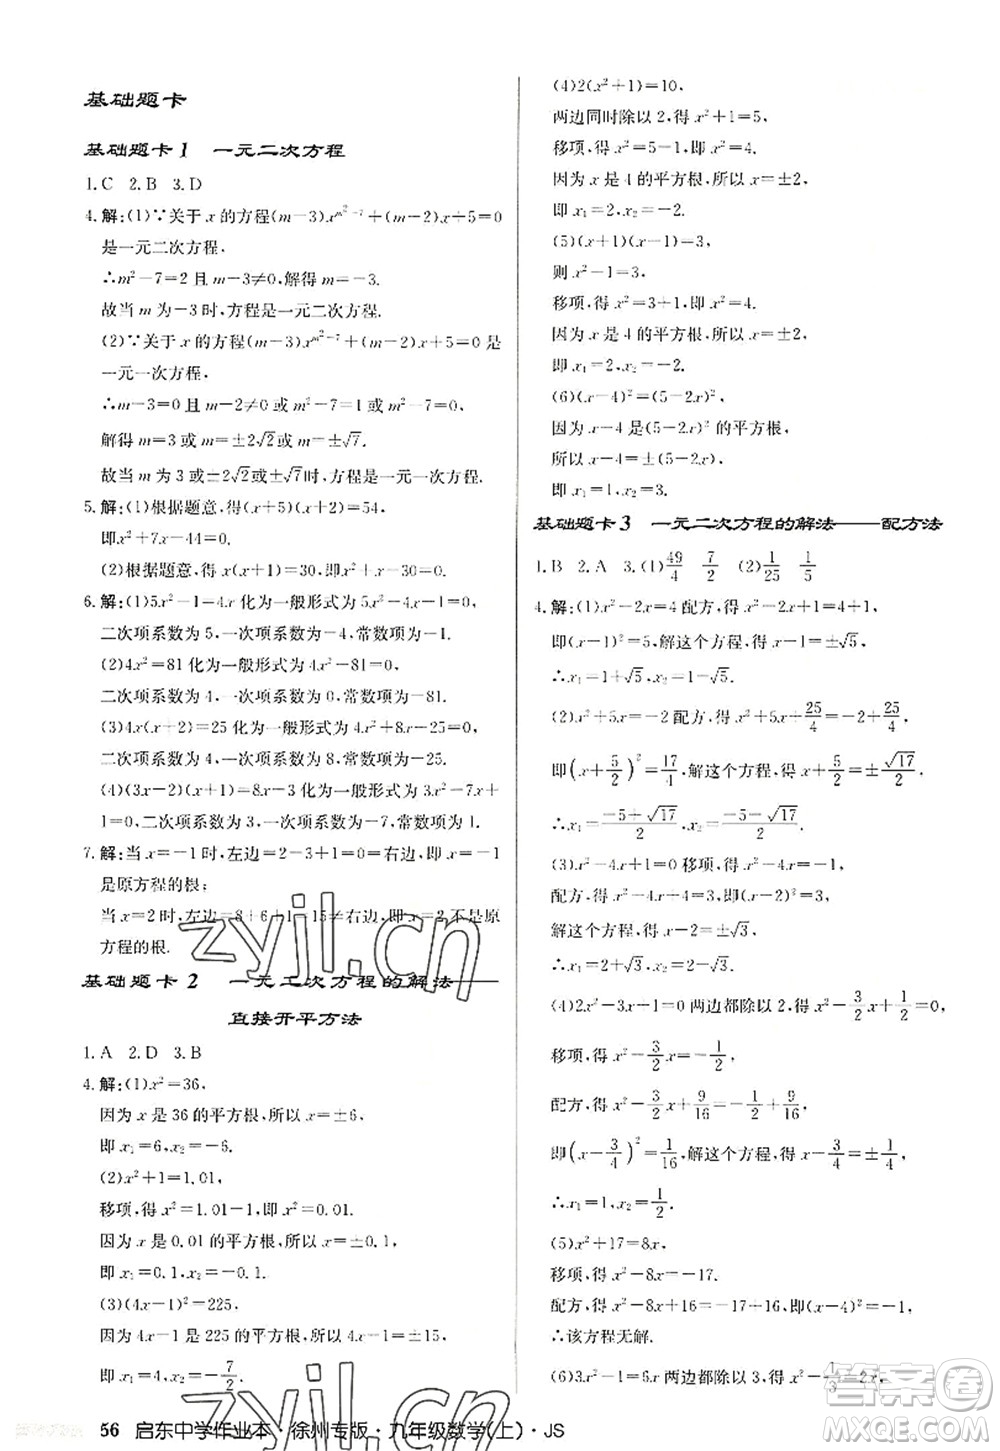 基础题卡
基础题卡1 一元二次方程
1.C 2.B 3.D
4.解:(1)∵关于x的方程(m-3)x^{m²-7}+(m-2)x+5=0
是一元二次方程,
∴m²-7=2且m-3≠0,解得m=-3.
故当m=-3时,方程是一元二次方程.
(2)∵关于x的方程(m-3)x^{m²-7}+(m-2)x+5=0是
一元一次方程,
∴m-3=0且m-2≠0或m²-7=1或m²-7=0,
解得m=3或m=±2√2或m=±√7.
故当m为3或±2√2或±√7时,方程是一元一次方程.
5.解:(1)根据题意,得(x+5)(x+2)=54,
即x²+7x-44=0.
(2)根据题意,得x(x+1)=30,即x²+x-30=0.
6.解:(1)5x²-1=4x化为一般形式为5x²-4x-1=0,
二次项系数为5,一次项系数为-4,常数项为-1.
(2)4x²=81化为一般形式为4x²-81=0,
二次项系数为4,一次项系数为0,常数项为-81.
(3)4x(x+2)=25化为一般形式为4x²+8x-25=0,
二次项系数为4,一次项系数为8,常数项为-25.
(4)(3x-2)(x+1)=8x-3化为一般形式为3x²-7x+
1=0,二次项系数为3,一次项系数为-7,常数项为1.
7.解:当x=-1时,左边=2-3+1=0=右边,即x=-1
是原方程的根;
当x=2时,左边=8+6+1=15≠右边,即x=2不是原
方程的根.
基础题卡2 一元二次方程的解法——
直接开平方法
1.A 2.D 3.B
4.解:(1)x²=36,
因为x是36的平方根,所以x=±6,
即x₁=6,x₂=-6.
(2)x²+1=1.01,
移项,得x²=1.01-1,即x²=0.01.
因为x是0.01的平方根,所以x=±0.1,
即x₁=0.1,x₂=-0.1.
(3)(4x-1)²=225,
因为4x-1是225的平方根,所以4x-1=±15,
即x₁=4,x₂=-7/2.
(4)2(x²+1)=10,
两边同时除以2,得x²+1=5,
移项,得x²=5-1,即x²=4.
因为x是4的平方根,所以x=±2,
即x₁=2,x₂=-2.
(5)(x+1)(x-1)=3,
则x²-1=3,
移项,得x²=3+1,即x²=4.
因为x是4的平方根,所以x=±2,
即x₁=2,x₂=-2.
(6)(x-4)²=(5-2x)²,
因为x-4是(5-2x)²的平方根,
所以x-4=±(5-2x),
即x₁=1,x₂=3.
基础题卡3 一元二次方程的解法——配方法
1.B 2.A 3.(1)49/4 7/2 (2)1/25 1/5
4.解:(1)x²-2x=4配方,得x²-2x+1=4+1,
即(x-1)²=5,解这个方程,得x-1=±√5,
∴x₁=1+√5,x₂=1-√5.
(2)x²+5x=-2配方,得x²+5x+25/4=-2+25/4,
即(x+5/2)²=17/4,解这个方程,得x+5/2=±√17/2,
∴x₁=(-5+√17)/2,x₂=(-5-√17)/2.
(3)x²-4x+1=0移项,得x²-4x=-1,
配方,得x²-4x+4=3,即(x-2)²=3,
解这个方程,得x-2=±√3,
∴x₁=2+√3,x₂=2-√3.
(4)2x²-3x+1=0两边都除以2,得x²-3/2x+1/2=0,
移项,得x²-3/2x=-1/2,
配方,得x²-3/2x+9/16=-1/2+9/16,
即(x-3/4)²=1/16,解这个方程,得x-3/4=±1/4,
∴x₁=1,x₂=1/2.
(5)x²+17=8x,
移项,得x²-8x=-17.
配方,得x²-8x+16=-17+16,即(x-4)²=-1,
∴该方程无解.
(6)3x²-1=6x两边都除以3,得x²-1/3=2x,
56 启东中学作业本·徐州专版·九年级数学(上)·JS
zyjl.cn
zyjl.cn
答案圈
MXQE.COM